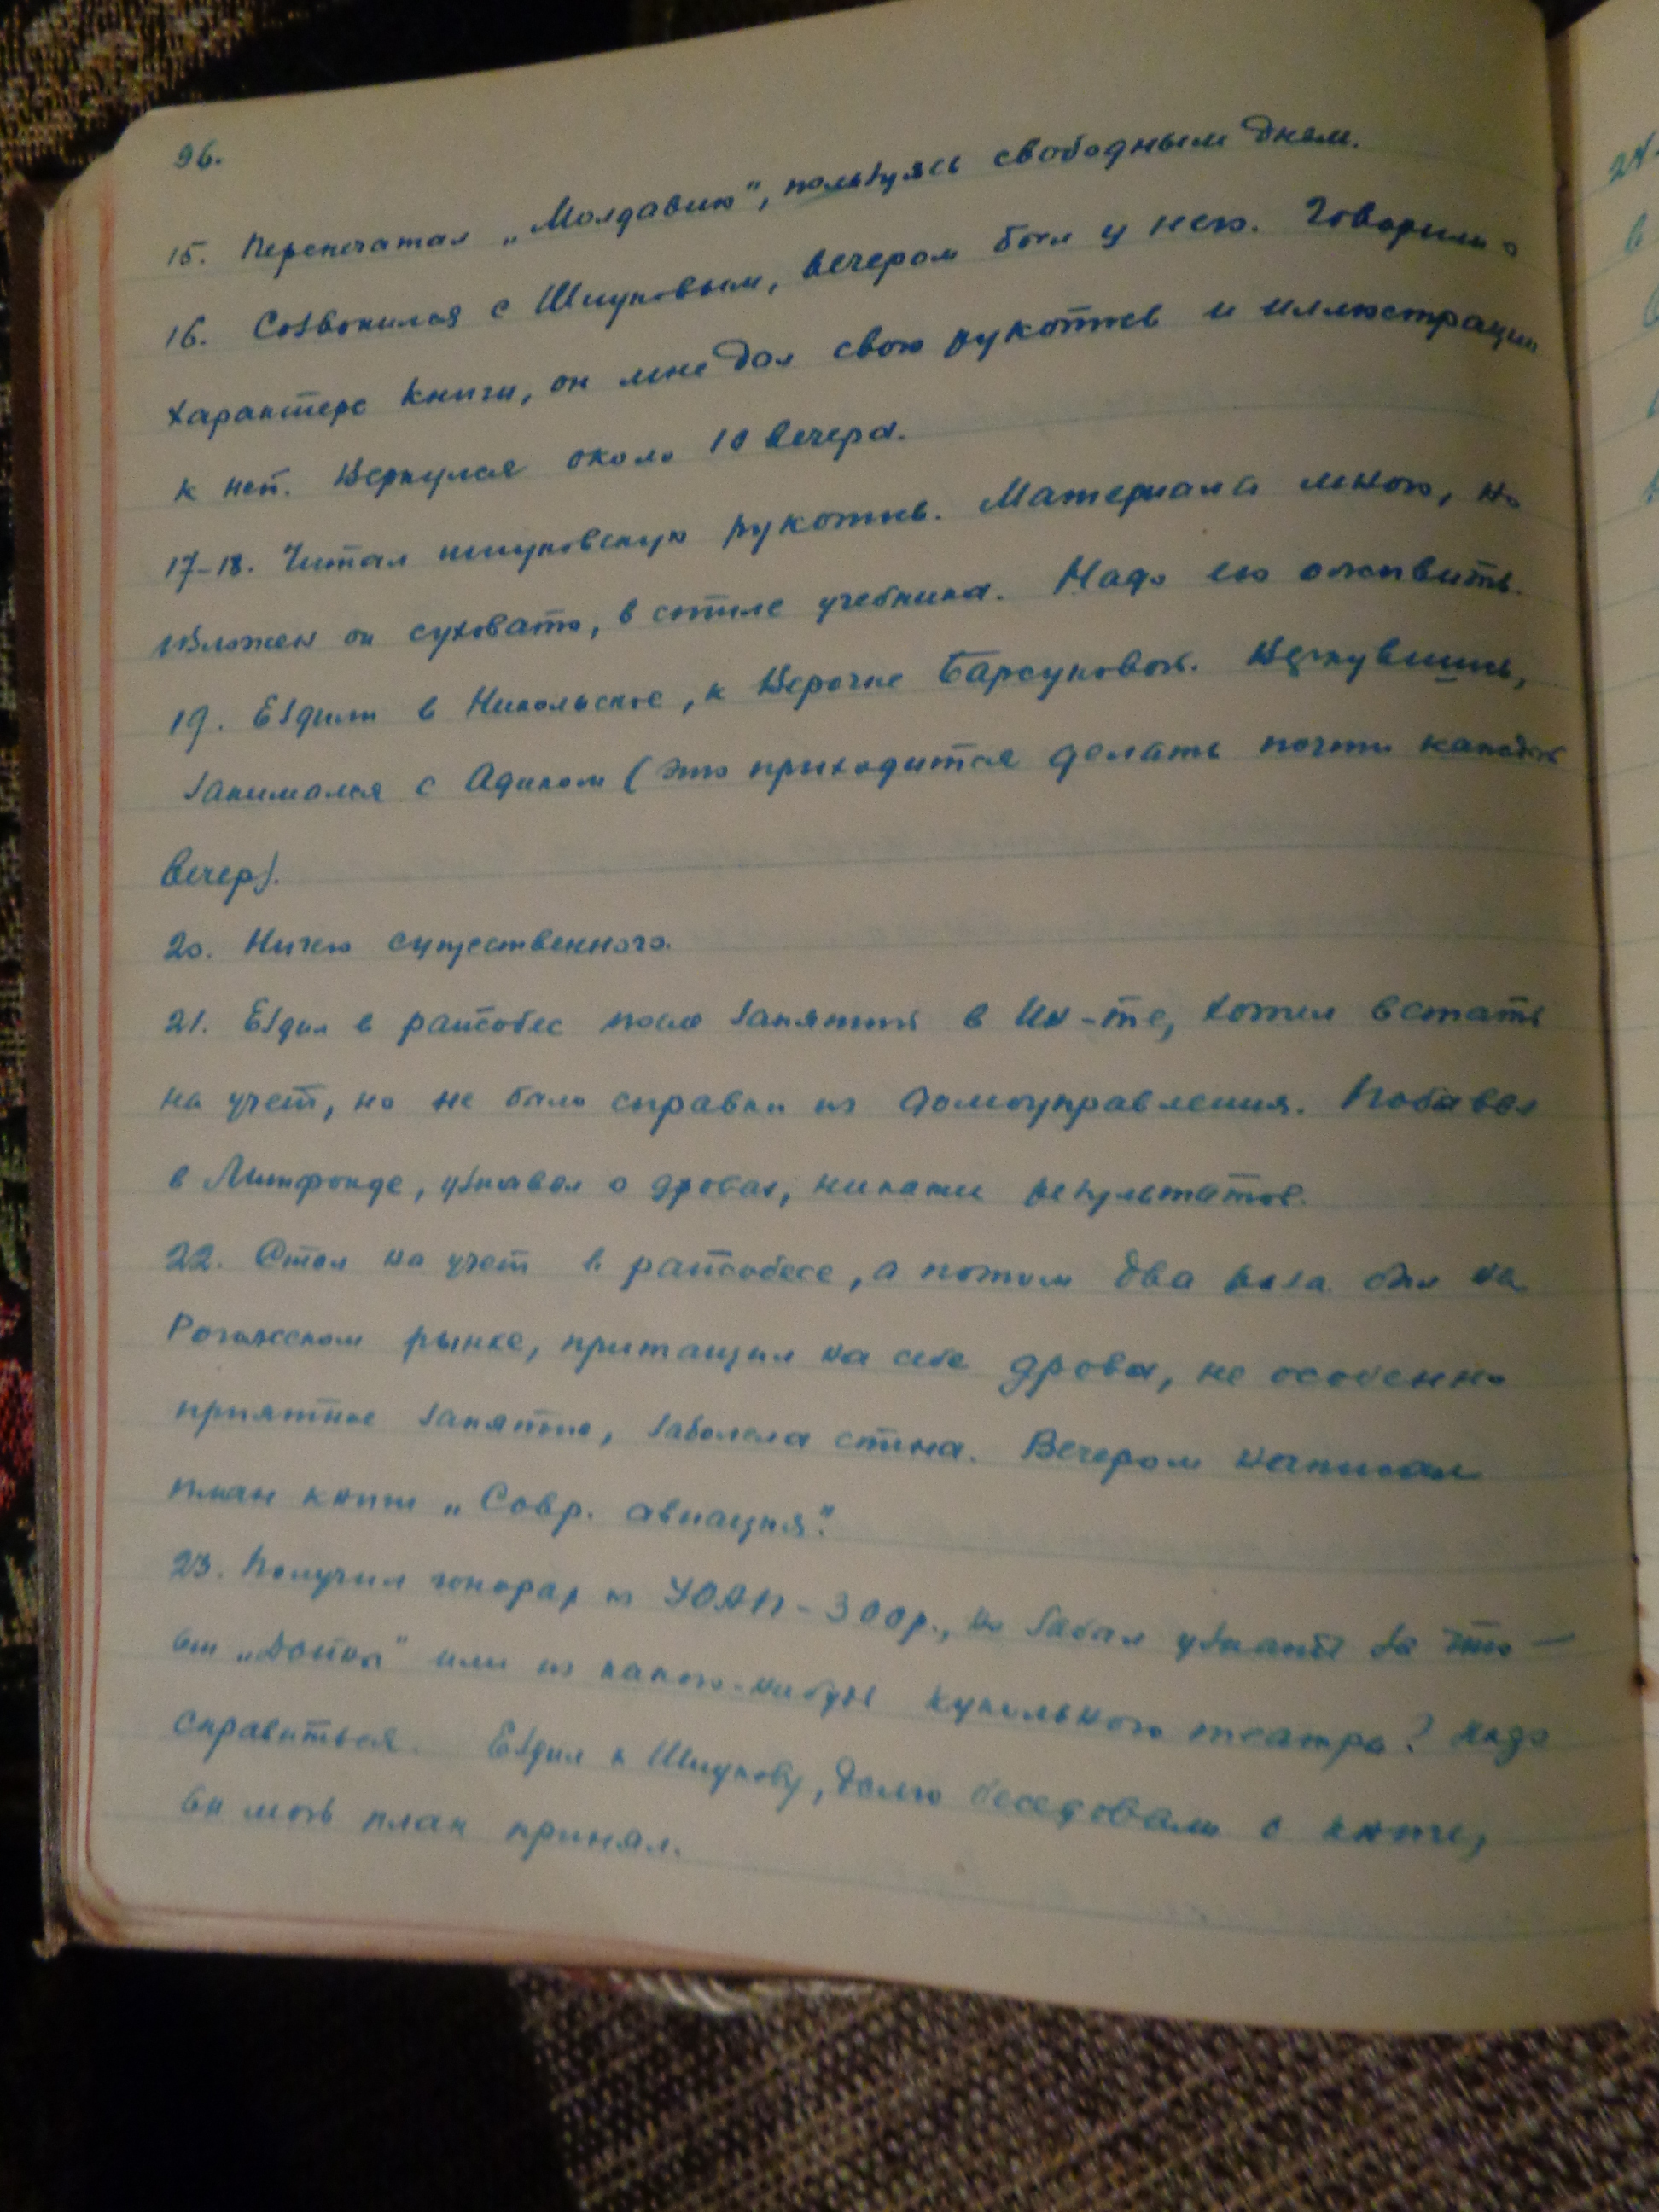 96.
15. Перепечатал „Молдавию", пользуясь свободным днем.
16. Созвонился с Шиуковым, вечером был у него. Говорили о
характере книги, он мне дал свою рукопись и иллюстрации
к ней. Вернулся около 10 вечера.
17-18. Читал шиуковскую рукопись. Материала много, но
изложен он суховато, в стиле учебника. Надо его оживить.
19. Ездили в Никольское, к Верочке Барсуковой. Вернувшись,
занимался с Адиком (это приходится делать почти каждый
вечер).
20. Ничего существенного.
21. Ездил в райсобес после занятий в Ин-те, хотел встать
на учет, но не было справки из домоуправления. Побывал
в Литфонде, узнавал о дровах, никаких результатов.
22. Стал на учет в райсобесе, а потом два раза был на
Рогожском рынке, притащил на себе дрова, не особенно
приятное занятие, заболела спина. Вечером написал
план книги „Совр. авиация".
23. Получил гонорар из УОАП - 300 р., но забыл узнать за что —
от или из какого-нибудь кукольного театра? Надо
справиться. Ездил к Шиукову, долго беседовали о книге,
он мой план принял.